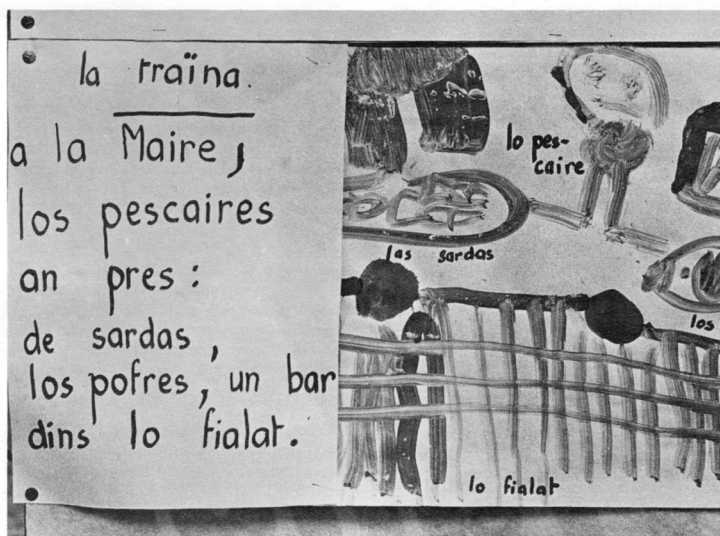 la traïna.
a la Maire,
los pescaires
an pres :
de sardas,
los pofres, un bar
dins lo fialat.
lo pes-
caire
las sardas
los
lo fialat